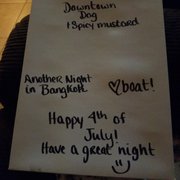 Downtown
Dog
1 Spicy mustard
Another Night
in Bangkok
♡boat!
Happy 4th of
July!
Have a great night